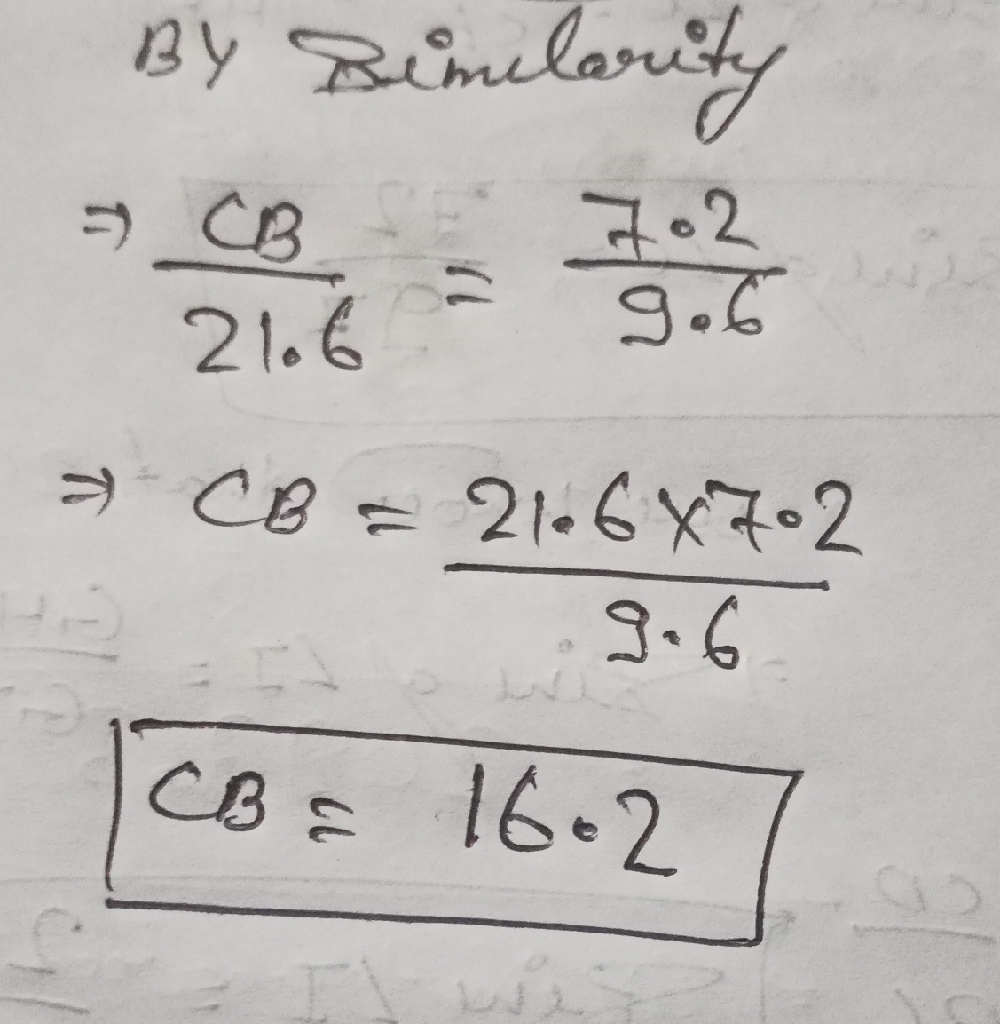 BY Similarity
⇒ CB/21.6 = 7.2/9.6
⇒ CB = 21.6×7.2/9.6
CB = 16.2